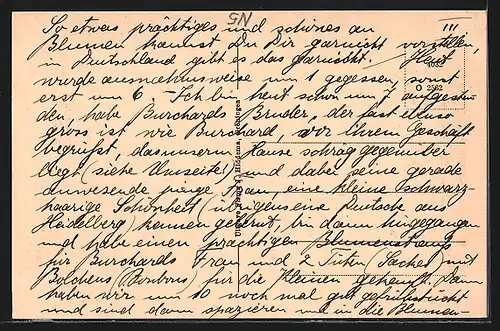 5N
III
So etwas prächtiges und schönes an
Blumen kannst Du Dir garnicht vorstellen,
in Deutschland gibt es das garnicht. Heut
wurde ausnahmsweise um 1 gegessen, sonst
erst um 6. Ich bin heut schon um 7 aufgestan-
den, habe Burchards Bruder, der fast ebenso
gross ist wie Burchard, vor Ihrem Geschäft
begrüßt, das unserm Hause schräg gegenüber
liegt (siehe Umseite) und dabei seine gerade
anwesende junge Frau, eine kleine schwarz-
haarige Schönheit (übrigens eine Deutsche aus
Heidelberg) kennen gelernt, bin dann hingegangen
und habe einen prächtigen Blumenstrauß
für Burchards Frau und 2 Tüten (Sachet) mit
Bolchens (Bonbons) für die Kleinen gekauft. Dann
haben wir um 10 noch mal gut gefrühstückt
und sind dann spazieren und in die Blumen-
4032
O 2562